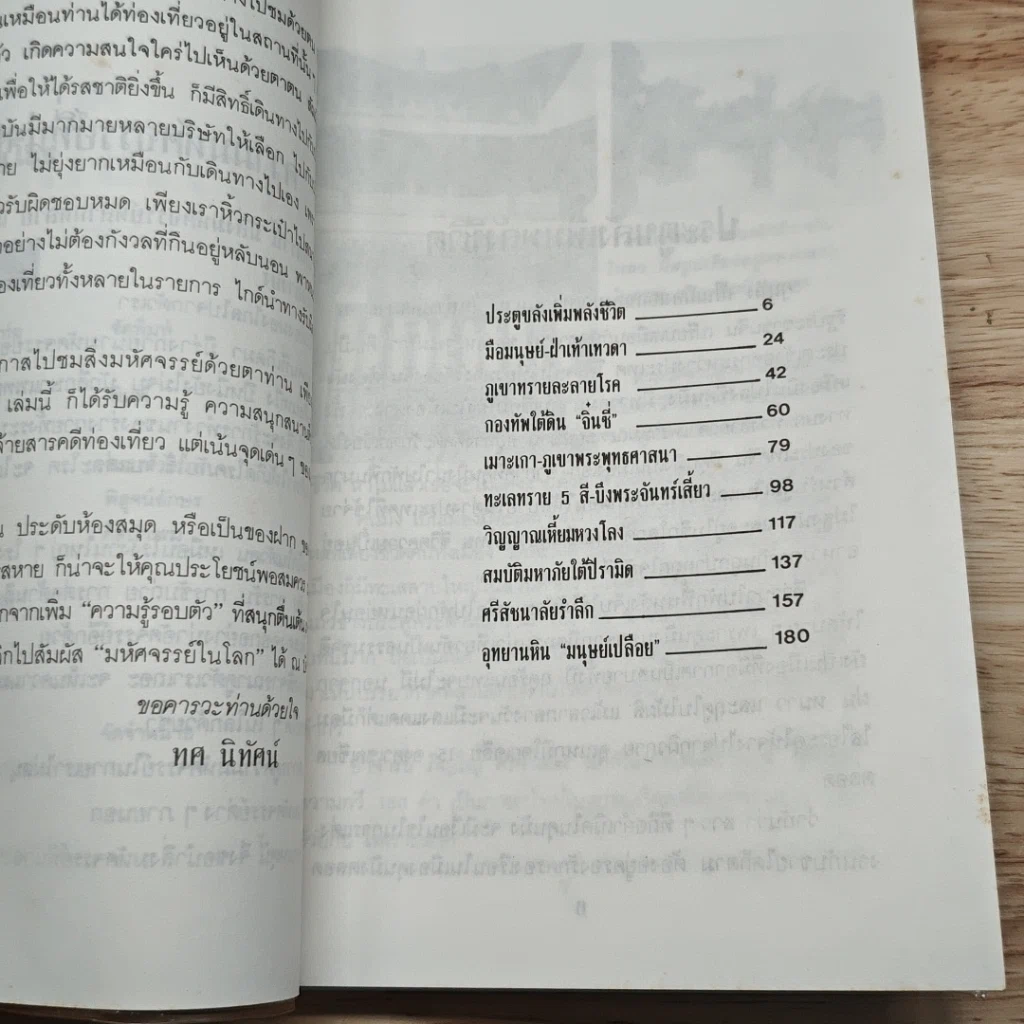 างไปชมด้วยตน
นเหมือนท่านได้ท่องเที่ยวอยู่ในสถานที่นั้น ๆ
เกิดความสนใจใคร่ไปเห็นด้วยตาตน
เพื่อให้ได้รสชาติยิ่งขึ้น ก็มีสิทธิ์เดินทางไปกับ
บันมีมากมายหลายบริษัทให้เลือก ไปกับ
าย ไม่ยุ่งยากเหมือนกับเดินทางไปเอง เพร
วรับผิดชอบหมด เพียงเราหิ้วกระเป๋าไปขึ้น
าอย่างไม่ต้องกังวลที่กินอยู่หลับนอน พาห
องเที่ยวทั้งหลายในรายการ ไกด์นำทางรับ
กาสไปชมสิ่งมหัศจรรย์ด้วยตาท่าน เพีย
เล่มนี้ ก็ได้รับความรู้ ความสนุกสนาน
้ายสารคดีท่องเที่ยว แต่เน้นจุดเด่น ๆ ของ
น ประดับห้องสมุด หรือเป็นของฝาก ขอ
สหาย ก็น่าจะให้คุณประโยชน์พอสมควร
กจากเพิ่ม “ความรู้รอบตัว” ที่สนุกตื่นเต้น
ีกไปสัมผัส “มหัศจรรย์ในโลก” ได้ ณ บั
ขอคารวะท่านด้วยใจ
ทศ นิทัศน์
ประตูขลังเพิ่มพลังชีวิต 6
มือมนุษย์-ฝ่าเท้าเทวดา 24
ภูเขาทรายละลายโรค 42
กองทัพใต้ดิน “จิ๋นซี” 60
เมาะเกา-ภูเขาพระพุทธศาสนา 79
ทะเลทราย 5 สี-บึงพระจันทร์เสี้ยว 98
วิญญาณเหี้ยมหวงโลง 117
สมบัติมหาภัยใต้ปิรามิด 137
ศรีสัชนาลัยรำลึก 157
อุทยานหิน “มนุษย์เปลือย” 180